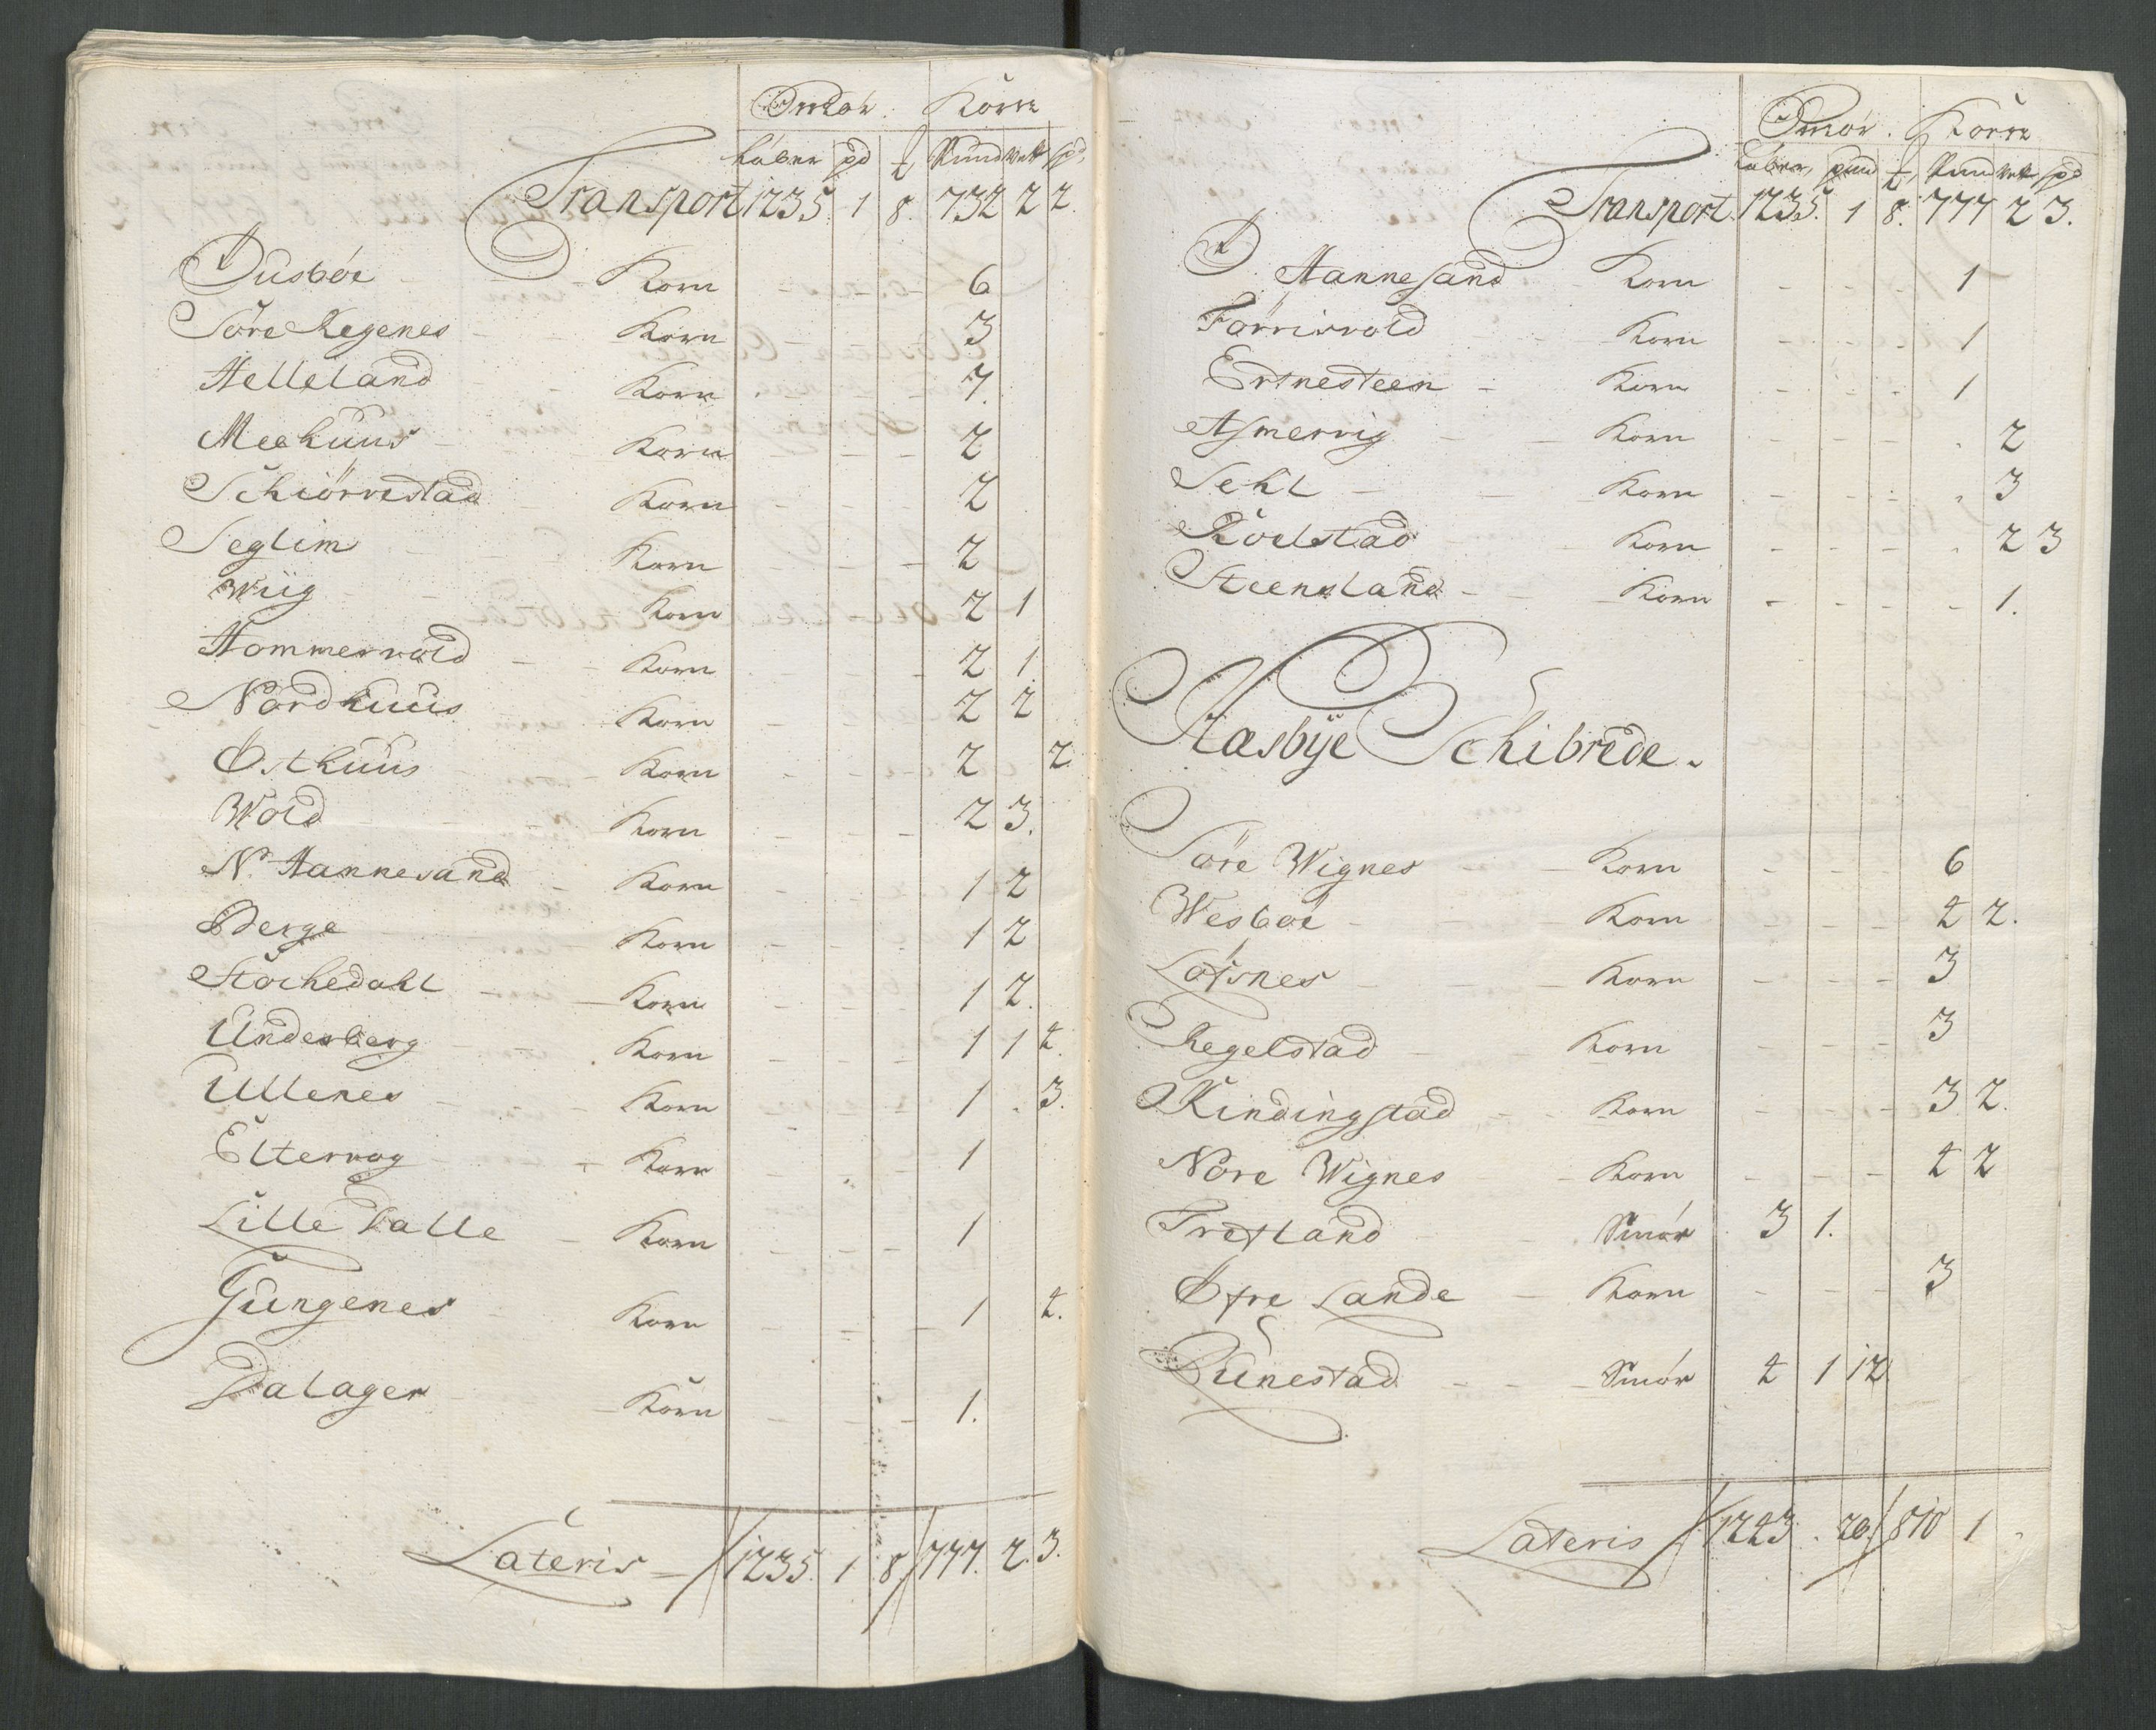 Smör. Korn
Løber pd ℔ Pund Vett spd
Transport 1235. 1 8. 732 2 2.
Dusböe Korn 6
Söre Regenes Korn 3
Helleland Korn 7.
Meehuus Korn 2
Schiörvestad Korn 2
Seglim Korn 2
Wiig Korn 2 1
Hommervold Korn 2 1
Nordhuus Korn 2 2
Østhuus Korn 2 2
Wold Korn 2 3.
N. Hannesand Korn 1 2
Berge Korn 1 2
Stochedahl Korn 1 2.
Underberg Korn 1 1 4.
Ullenes Korn 1 . 3.
Eltervog Korn 1
Lille Dalle Korn 1
Gungenes Korn 1 4.
Dalager Korn 1.
Lateris 1235. 1 8 777. 2. 3.
Smör. Korn
Løber, pund ℔, Pund Vet spd
Transport. 1235. 1 8. 777 2 3.
D. Hannesand Korn 1
Förrisvold Korn 1
Ertnesteen Korn 1
Asmervig Korn 2
Sehl Korn 3
Roelstad Korn 2 3
Steensland Korn 1.
Aasbye Schibrede.
Söre Wignes Korn 6
Wesböe Korn 4 2.
Lofsnes Korn 3
Regelstad Korn 3
Kindingstad Korn 3 2.
Nore Wignes Korn 4 2
Tretland Smör 3 1.
Øfre Lande Korn 3
Runestad Smör 4 1 12
Lateris 1243 . 20 810 1 .